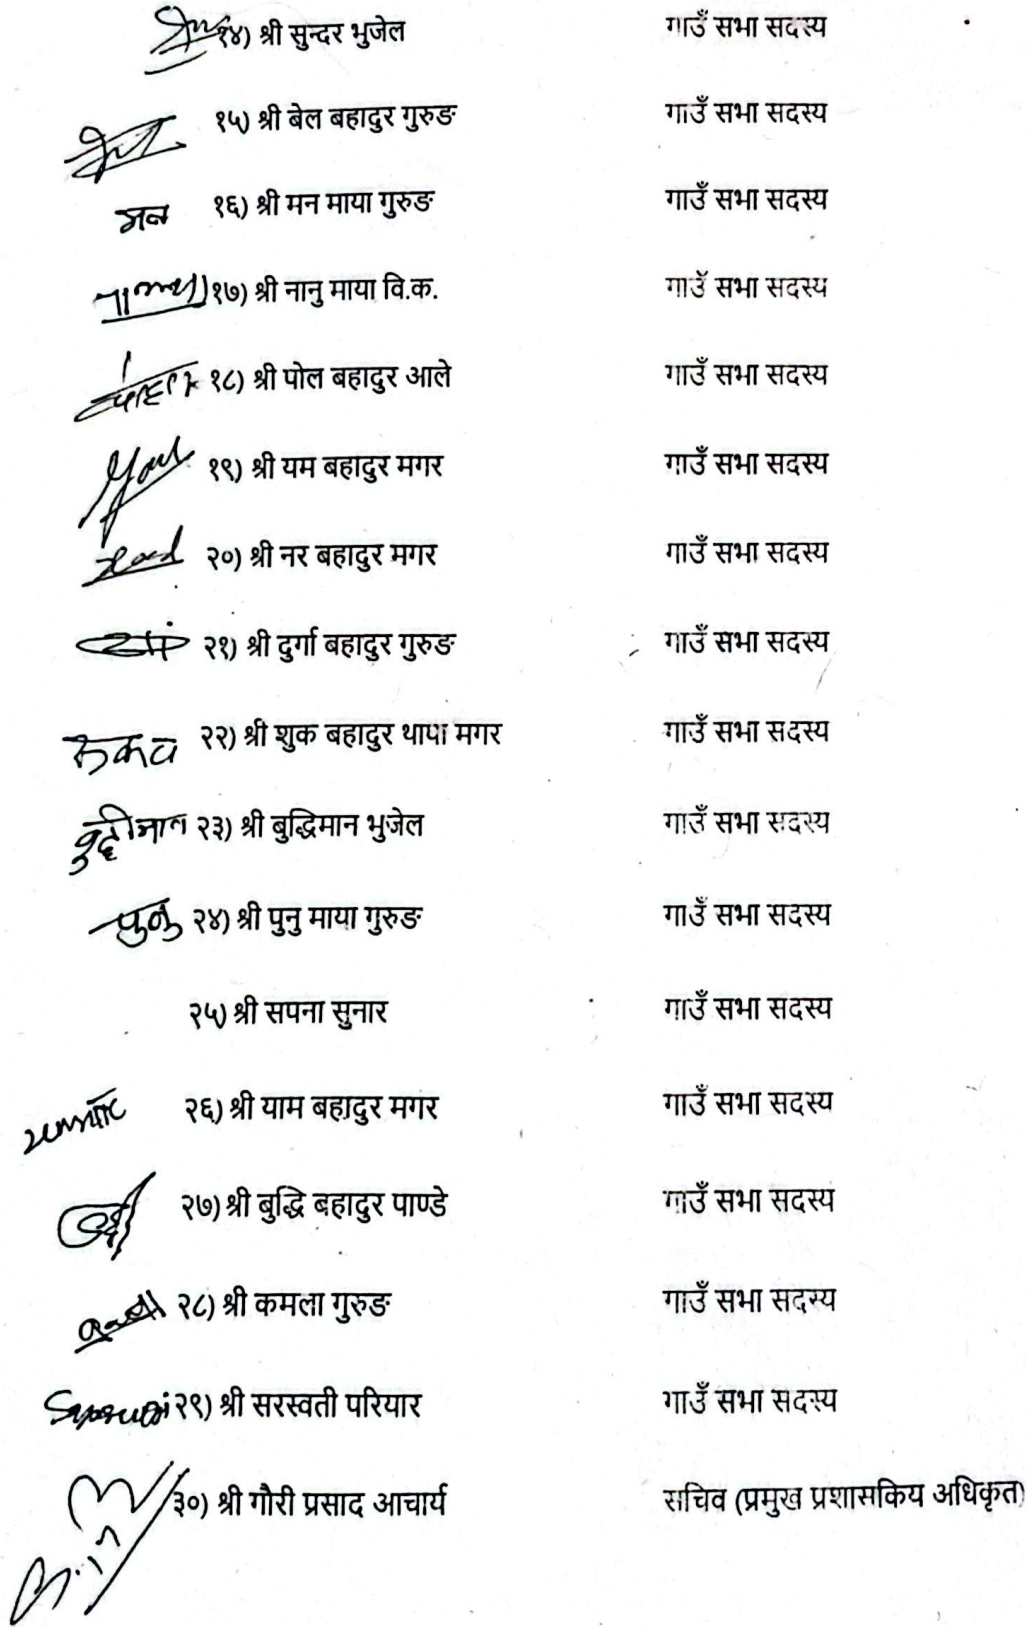 १४) श्री सुन्दर भुजेल गाउँ सभा सदस्य
१५) श्री बेल बहादुर गुरुङ गाउँ सभा सदस्य
मन १६) श्री मन माया गुरुङ गाउँ सभा सदस्य
१७) श्री नानु माया वि.क. गाउँ सभा सदस्य
१८) श्री पोल बहादुर आले गाउँ सभा सदस्य
१९) श्री यम बहादुर मगर गाउँ सभा सदस्य
२०) श्री नर बहादुर मगर गाउँ सभा सदस्य
२१) श्री दुर्गा बहादुर गुरुङ गाउँ सभा सदस्य
२२) श्री शुक बहादुर थापा मगर गाउँ सभा सदस्य
बुद्धीमान २३) श्री बुद्धिमान भुजेल गाउँ सभा सदस्य
पुनु २४) श्री पुनु माया गुरुङ गाउँ सभा सदस्य
२५) श्री सपना सुनार गाउँ सभा सदस्य
२६) श्री याम बहादुर मगर गाउँ सभा सदस्य
२७) श्री बुद्धि बहादुर पाण्डे गाउँ सभा सदस्य
२८) श्री कमला गुरुङ गाउँ सभा सदस्य
२९) श्री सरस्वती परियार गाउँ सभा सदस्य
३०) श्री गौरी प्रसाद आचार्य सचिव (प्रमुख प्रशासकिय अधिकृत)